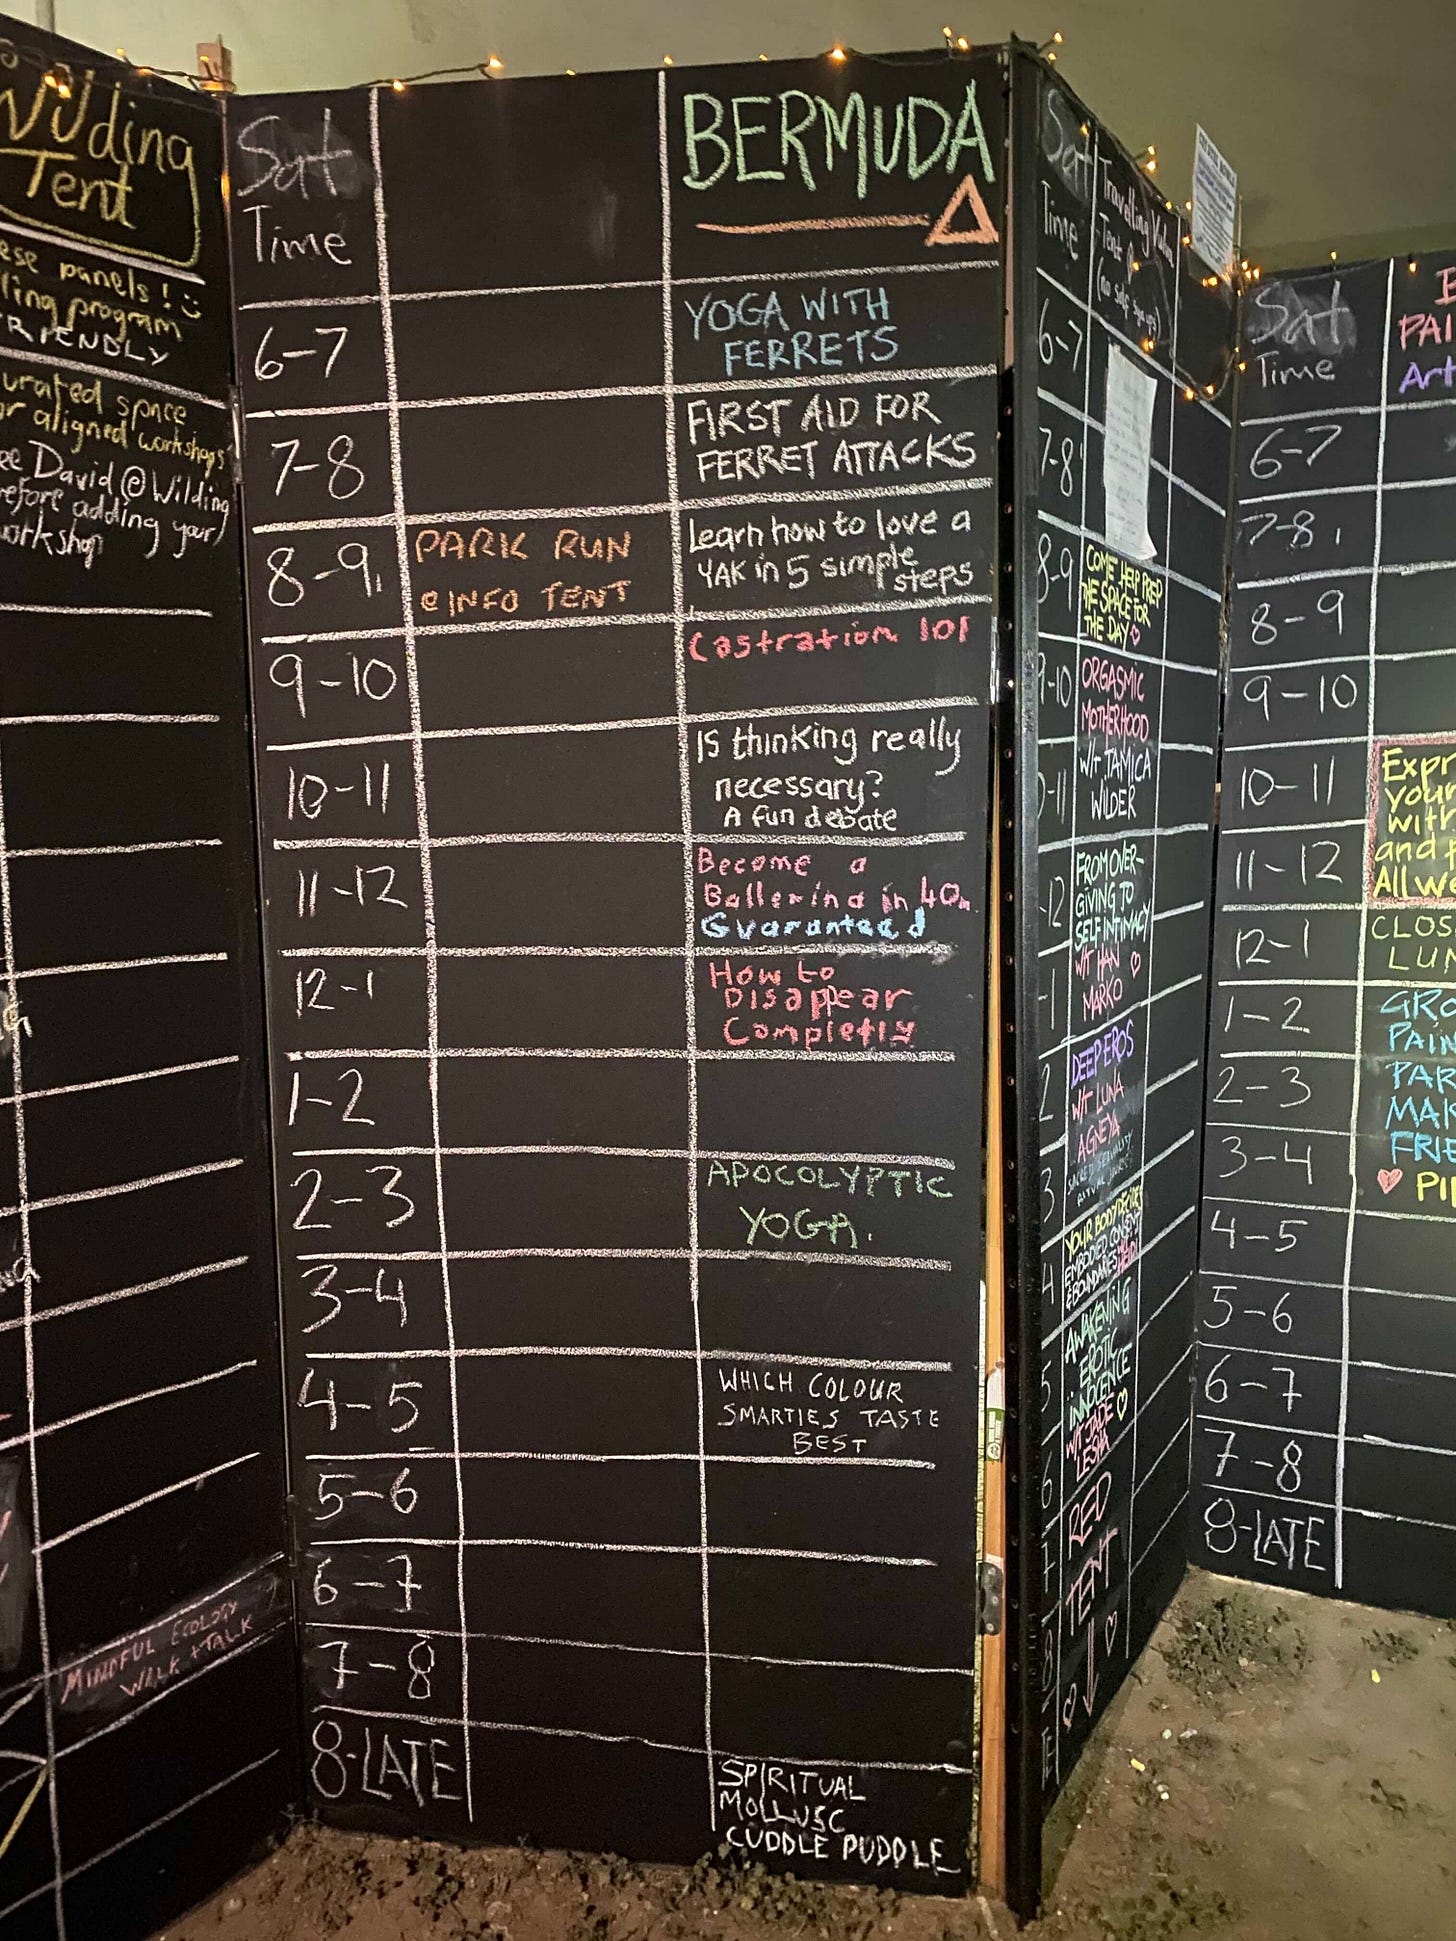 Wilding
Tent
ese panels! :)
ling program
FRIENDLY
urated space
or aligned workshops
ee David @ Wilding
efore adding your
workshop
MINDFUL ECOLOGY
WALK + TALK
Sat
Time
BERMUDA
6-7
YOGA WITH
FERRETS
7-8
FIRST AID FOR
FERRET ATTACKS
8-9
PARK RUN
@ INFO TENT
Learn how to love a
YAK in 5 simple
steps
9-10
Castration 101
10-11
Is thinking really
necessary?
A fun debate
11-12
Become a
Ballerina in 40m
Guaranteed
12-1
How to
Disappear
Completly
1-2
2-3
APOCOLYPTIC
YOGA.
3-4
4-5
WHICH COLOUR
SMARTIES TASTE
BEST
5-6
6-7
7-8
8-LATE
SPIRITUAL
MOLLUSC
CUDDLE PUDDLE
Sat
Time
Travelling
Tent
(no self sign ups)
6-7
7-8
8-9
COME HELP PREP
THE SPACE FOR
THE DAY ♡
9-10
ORGASMIC
MOTHERHOOD
W/T TAMICA
WILDER
0-11
-12
FROM OVER-
GIVING TO
SELF INTIMACY
W/T HAN ♡
MARKO
-1
2
DEEP EROS
W/T LUNA
AGNEYA
3
YOUR BODY DECIDES
EMBODIED CONSENT
& BOUNDARIES
4
AWAKENING
EROTIC
INNOCENCE
W/T JADE ♡
LESHA
5
6
RED
TENT
7
8
TE
Sat
Time
PAI
Art
6-7
7-8
8-9
9-10
10-11
Expr
your
with
11-12
and
All we
12-1
CLOS
LUN
1-2
GRO
PAIN
2-3
PAR
MAK
3-4
FRIE
♥ PI
4-5
5-6
6-7
7-8
8-LATE